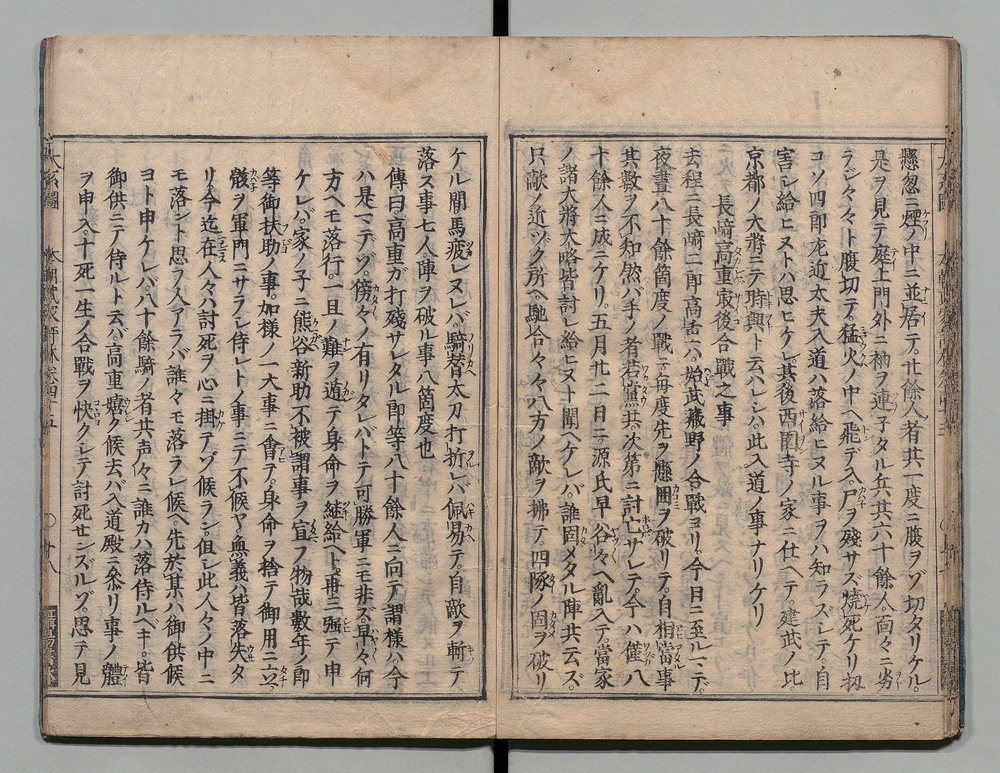 懸忽ニ煙ノ中ニ並居テ。廿餘人ノ者共一度ニ腹ヲゾ切タリケル。
是ヲ見テ庭上門外ニ袖ヲ連子タル兵共六十餘人。面々ニ劣
ラジ々々ト腹切テ。猛火ノ中ヘ飛デ入。尸ヲ殘サズ燒死ケリ。扨
コソ四郎左近太夫入道ハ落給ヒヌル事ヲハ知ラズシテ。自
害シ給ヒヌトハ思ヒケレ。其後西園寺ノ家ニ仕ヘテ建武ノ比。
京都ノ大將ニテ時興ト云ハレシハ。此入道ノ事ナリケリ
長﨑高重最後合戰之事
去程ニ長﨑二郎高重ハ。始武藏野ノ合戰ヨリ。今日ニ至ルマデ。
夜晝八十餘箇度ノ戰ニ。毎度先ヲ懸。囲ヲ破リテ。自相當事
其數ヲ不知。然バ手ノ者若黨共。次第ニ討亡サレテ。今ハ僅八
十餘人ニ成ニケリ。五月廿二日ニ。源氏早谷々ヘ亂入テ。當家
ノ諸大將大略皆討レ給ヒヌト聞ヘケレバ。誰固メタル陣共云ズ。
只敵ノ近ヅク所ヘ馳合々々。八方ノ敵ヲ拂テ。四隊ノ固ヲ破リ
ケル間。馬疲レヌレバ騎替。太刀打折レバ佩易テ。自敵ヲ斬テ
落ス事七人。陣ヲ破ル事八箇度也
傳曰。高重ガ打殘サレタル郎等八十餘人ニ向テ謂樣ハ。今
ハ是マデゾ。傍々ノ有リタレバトテ可勝軍ニモ非ズ。早々何
方ヘモ落行。一旦ノ難ヲ遁テ身命ヲ繼給ヘト。再三強テ申
ケレバ。家ノ子ニ熊谷新助。不被謂事ヲ宣フ物哉。數年ノ郎
等御扶助ノ事。如樣ノ一大事ニ會ヲ。身命ヲ捨テ御用ニ立。
骸ヲ軍門ニサラシ侍レトノ事ニテ不候ヤ。無義ハ皆落失タ
リ。今迄在人々ハ討死ヲ心ニ掛テゾ候ラン。但シ此人々ノ中ニ
モ落シト思フ人アラバ誰々モ落ラレ候ヘ。先於某ハ御供候
ヨト申ケレバ。八十餘騎ノ者共声々ニ誰カハ落侍ルベキ。皆
御供ニテ侍ルト云バ。高重嬉ク候。去バ入道殿ニ參リ事ノ體
ヲ申入。十死一生ノ合戰ヲ快クシテ討死センズルゾ。思テ見